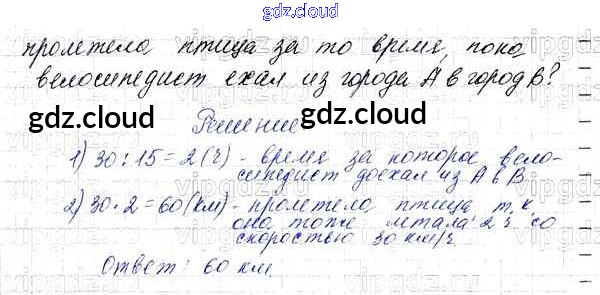 gdz.cloud
пролетела птица за то время, пока
велосипедист ехал из города А в город В?
gdz.cloud gdz.cloud
Решение
1) 30 : 15 = 2 (ч) - время за которое вело-
сипедист доехал из А в В
2) 30 · 2 = 60 (км) - пролетела птица т.к.
она тоже летала 2 ч со
скоростью 30 км/ч
Ответ: 60 км.
gdz.cloud